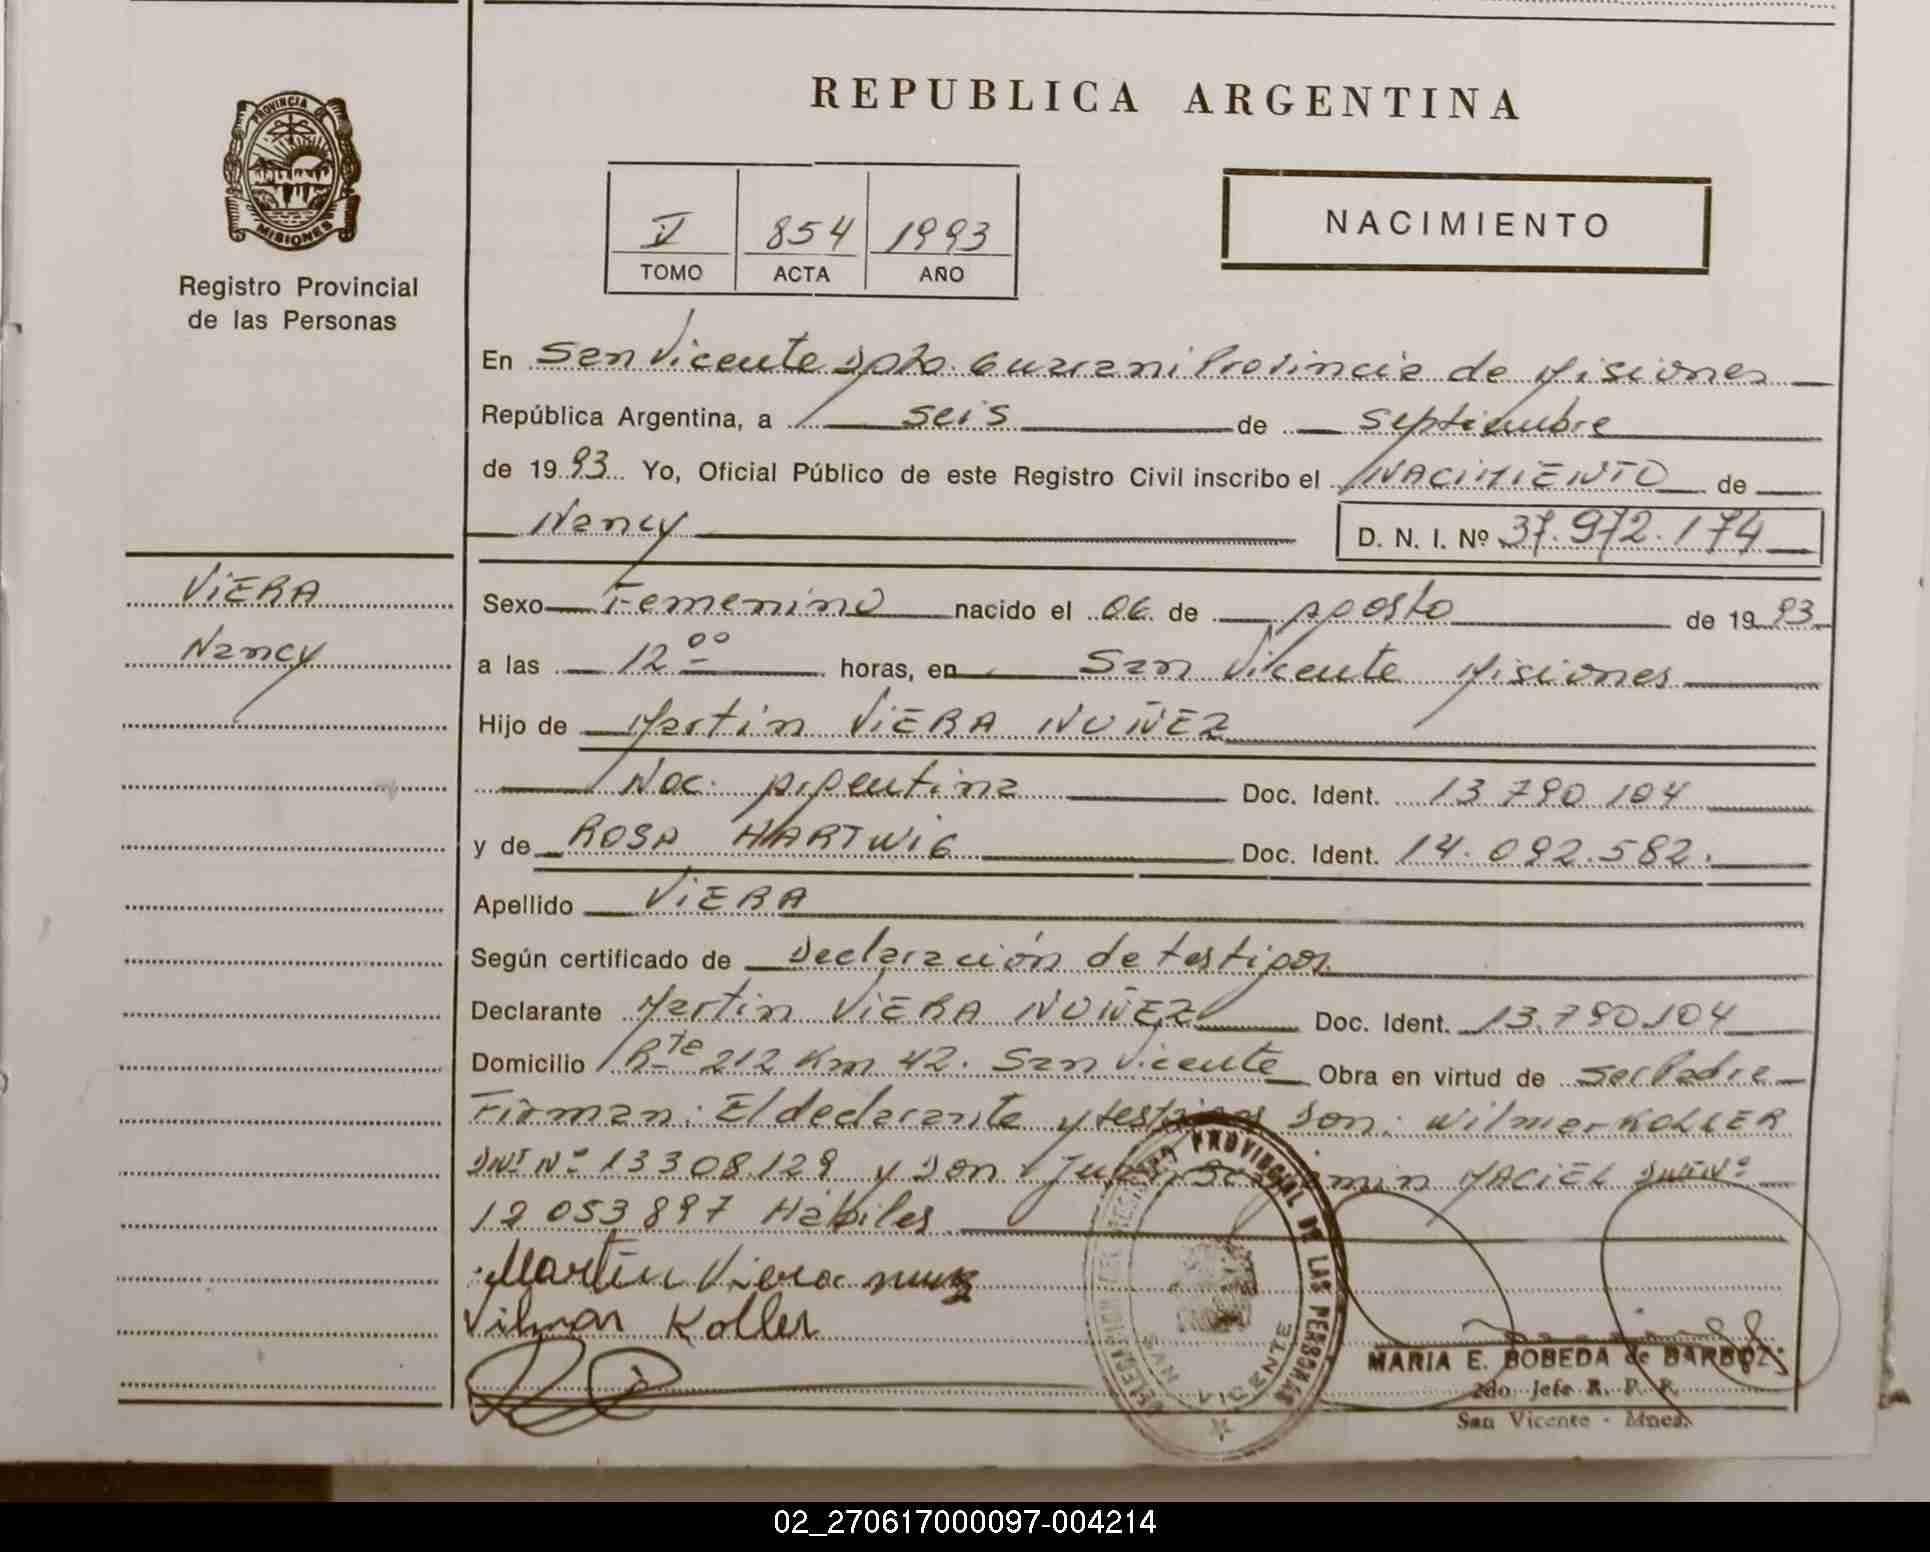 REPUBLICA ARGENTINA
PROVINCIA DE
MISIONES
Registro Provincial
de las Personas
V 854 1993
TOMO ACTA AÑO
NACIMIENTO
En San Vicente Dpto. Guarani Provincia de Misiones
República Argentina, a seis de septiembre
de 1993 Yo, Oficial Público de este Registro Civil inscribo el NACIMIENTO de
Nancy D. N. I. Nº 37.972.174
VIERA
Nancy
Sexo Femenino nacido el 06 de Agosto de 1993
a las 12 00 horas, en San Vicente Misiones
Hijo de Martin VIERA NUÑEZ
Nac. Argentina Doc. Ident. 13 790 104
y de ROSA HARTWIG Doc. Ident. 14.092.582.
Apellido VIERA
Según certificado de Declaración de testigos
Declarante Martin VIERA NUÑEZ Doc. Ident. 13.790.104
Domicilio Rte 212 Km 42. San Vicente Obra en virtud de ser Padre
Firman: El declarante y testigos Don: Wilmar KOLLER
DNI Nº 13308.129 y Don MACIEL DNI Nº
12 053 897 Hábiles
Martin Viera
Vilmar Koller
DELEGACION PROVINCIAL DE LAS PERSONAS
SAN VICENTE
MARIA E. BOBEDA de BARBOZA
2do. Jefe R. P. P.
San Vicente - Mnes.
02_270617000097-004214